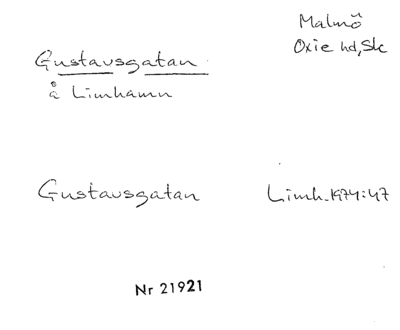 Malmö
Oxie hd, Sk
Gustavsgatan
å Limhamn
Gustavsgatan Limh. 1974:47
Nr 21921